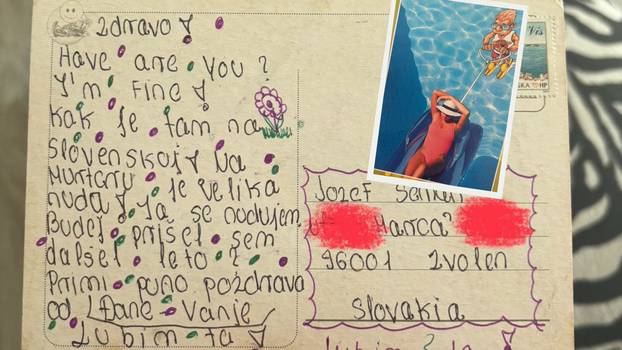 Zdravo
Have are you?
I'm Fine
Kak je tam na
Slovenskoj Na
Murteru je velika
nuda ja se nudujem
Budeš prisel sem
dalšel leto?
Primi puno pozdrava
od Đane - Vanje
Lubim ta
Vis
HP
Jozef
Marca
96001 Zvolen
Slovakia